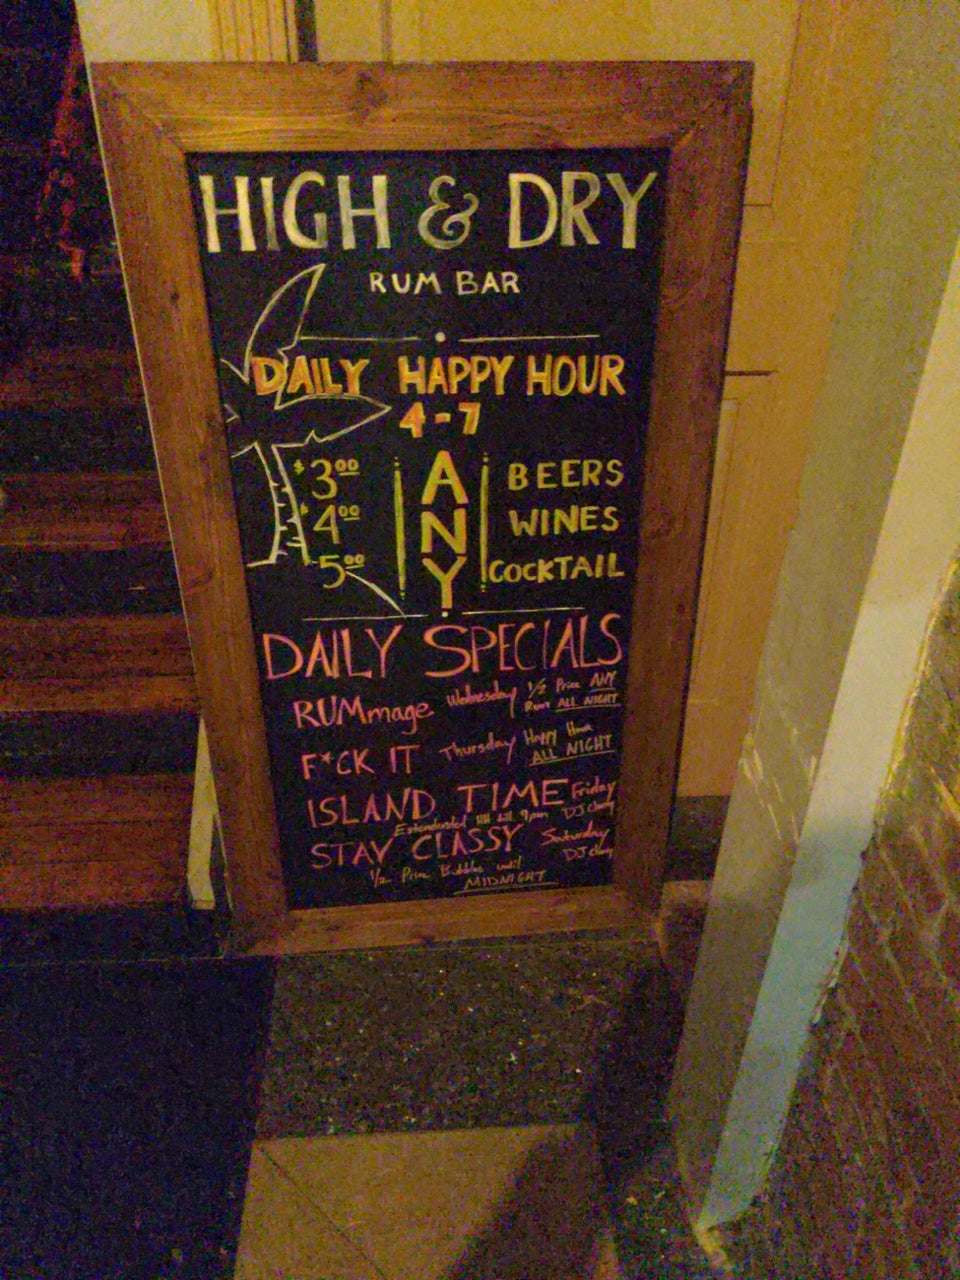 HIGH & DRY
RUM BAR
DAILY HAPPY HOUR
4-7
$3.00 ANY BEERS
$4.00 WINES
5.00 COCKTAIL
DAILY SPECIALS
RUMmage Wednesday 1/2 Price ANY
Rum ALL NIGHT
F*CK IT Thursday Happy Hour
ALL NIGHT
ISLAND TIME Friday
HH till 9pm DJ
STAY CLASSY Saturday
DJ
1/2 Price Bubbles until
MIDNIGHT